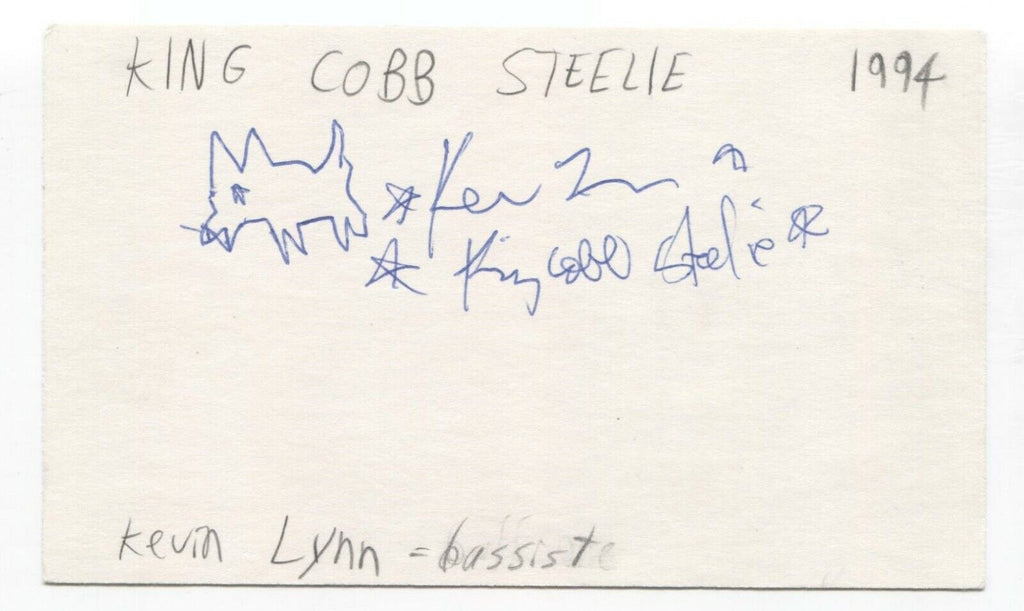 KING COBB STEELIE 1994
Kev
King Cobb Steelie
Kevin Lynn = bassiste